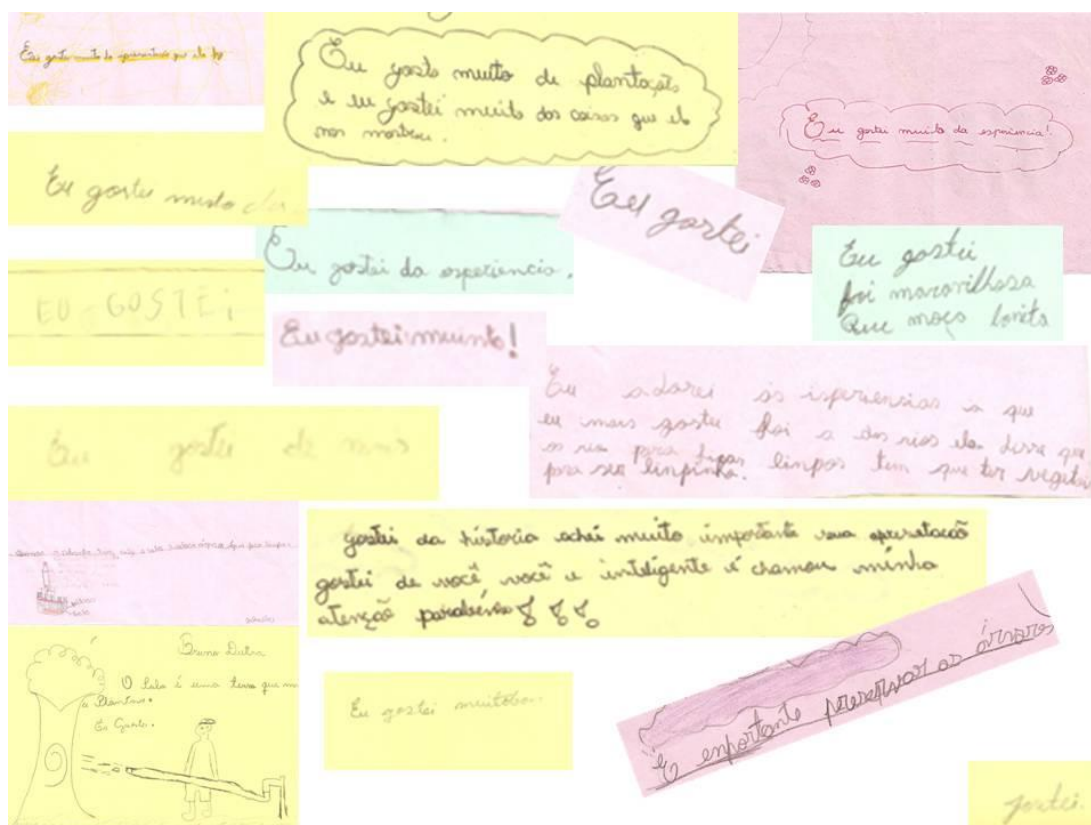 Eu gostei muito da apresentação que ela fez
Eu gosto muito de plantações
e eu gostei muito das coisas que el
nos mostrou.
Eu gostei muito da esperiencia!
Eu gostei muito
Eu gostei
Eu gostei da esperiencia.
Eu gostei
foi maravilhosa
Que moça bonita
EU GOSTEi
Eu gostei muinto!
Eu adorei as isperiencias a que
eu mais gostei foi a dos rios ela disse que
os rios para ficar limpos tem que ter vegeta
para ser linpinho.
Eu gostei de mais
gostei da historia achei muito importante sua apresetacão
gostei de você você e inteligente é chamou minha
atenção parabéns
Bruno Dutra
O Solo é uma terra que
a Plantas.
Eu Gostei.
Eu gostei muito
é enportante preservar as árvores
gostei.